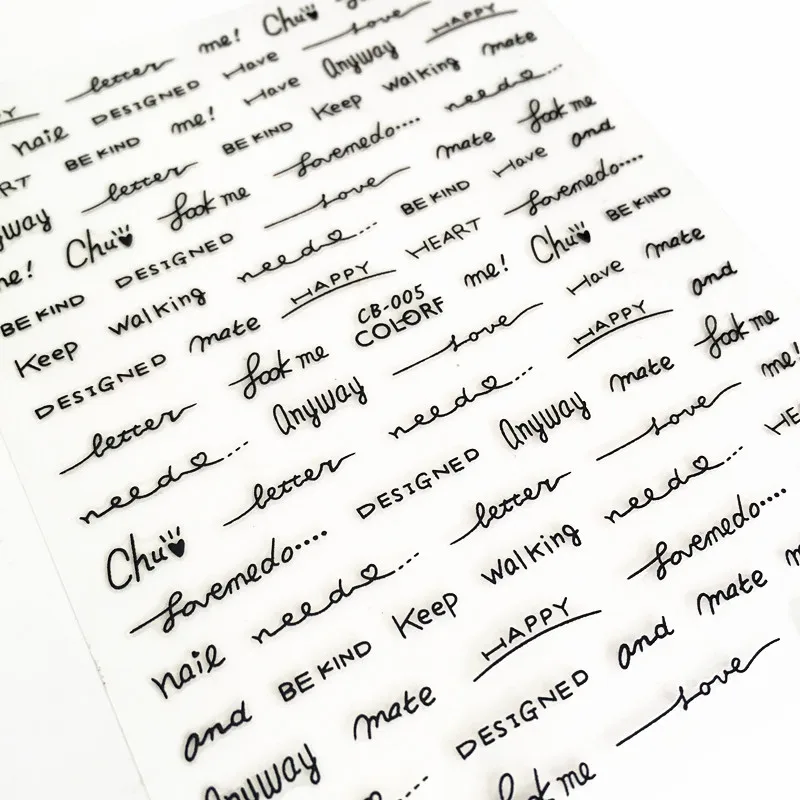 better me! Chu
nail DESIGNED Have love
BE KIND me! Have Anyway HAPPY
better BE KIND Keep walking mate
me! Chu look me lovemedo.... need...
BE KIND DESIGNED love mate look me
Keep walking need... BE KIND Have and
DESIGNED mate HAPPY HEART lovemedo....
better look me CB-005 COLORF me! Chu BE KIND
need... Anyway love Have mate
Chu better need... HAPPY and
lovemedo.... DESIGNED Anyway mate look me
nail need... better love me!
and BE KIND Keep walking need...
Anyway mate HAPPY lovemedo....
DESIGNED and mate
look me love